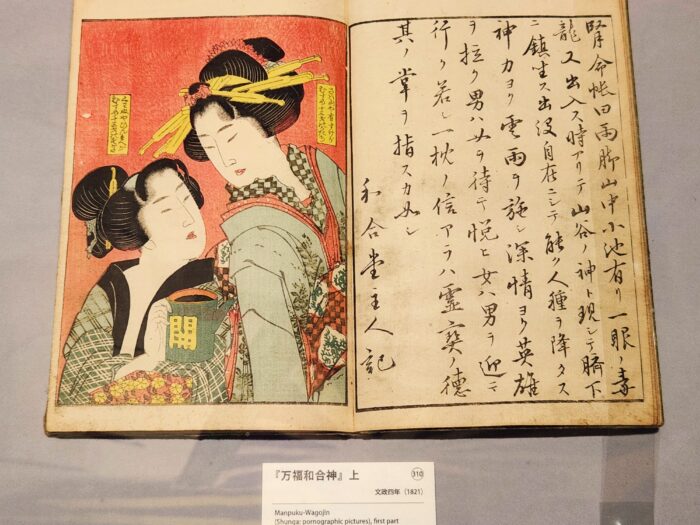 腎命帳曰兩脚山中小池有リ一眼ノ毒
龍又出入ス時アリテ山谷ノ神ト現シテ臍下
ニ鎮坐ス出没自在ニシテ能ク人種ヲ降クス
神力ヨク雲雨ヲ施シ深情ヨク英雄
ヲ拉ク男ハ女ヲ待テ悦ヒ女ハ男ヲ迎ニ
行ク若シ一枕ノ信アラハ霊寶ノ徳
其ノ掌ヲ指スカ如シ
和合堂主人記
『万福和合神』上
310
文政四年（1821）
Manpuku-Wagojin
(Shunga: pornographic pictures), first part